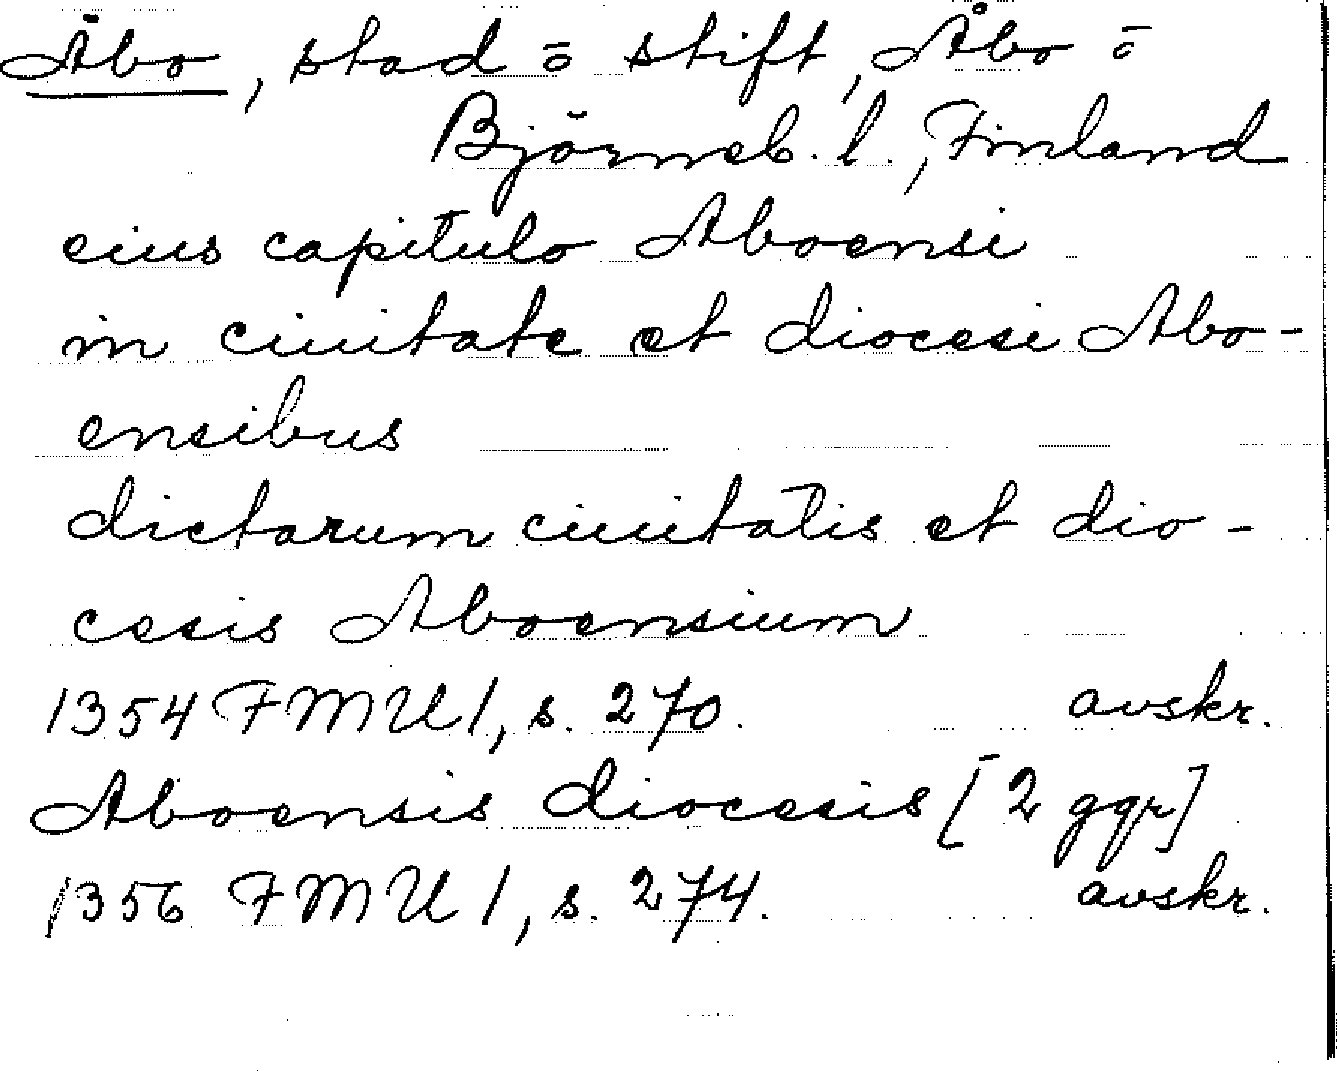 Åbo, stad o stift, Åbo o
Björneb. l., Finland
eius capitulo Aboensi
in ciuitate et diocesi Abo-
ensibus
dictarum ciuitatis et dio-
cesis Aboensium
1354 FMU 1, s. 270. avskr.
Aboensis diocesis [2 ggr]
1356 FMU 1, s. 274. avskr.